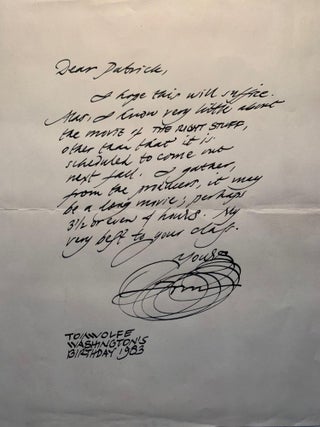 Dear Patrick,
I hope this will suffice.
Alas, I know very little about
the movie of THE RIGHT STUFF,
other than that it is
scheduled to come out
next fall. I gather,
from the producers, it may
be a long movie, perhaps
3½ or even 4 hours. My
very best to your class.
Yours
TOM WOLFE
WASHINGTON'S
BIRTHDAY 1983